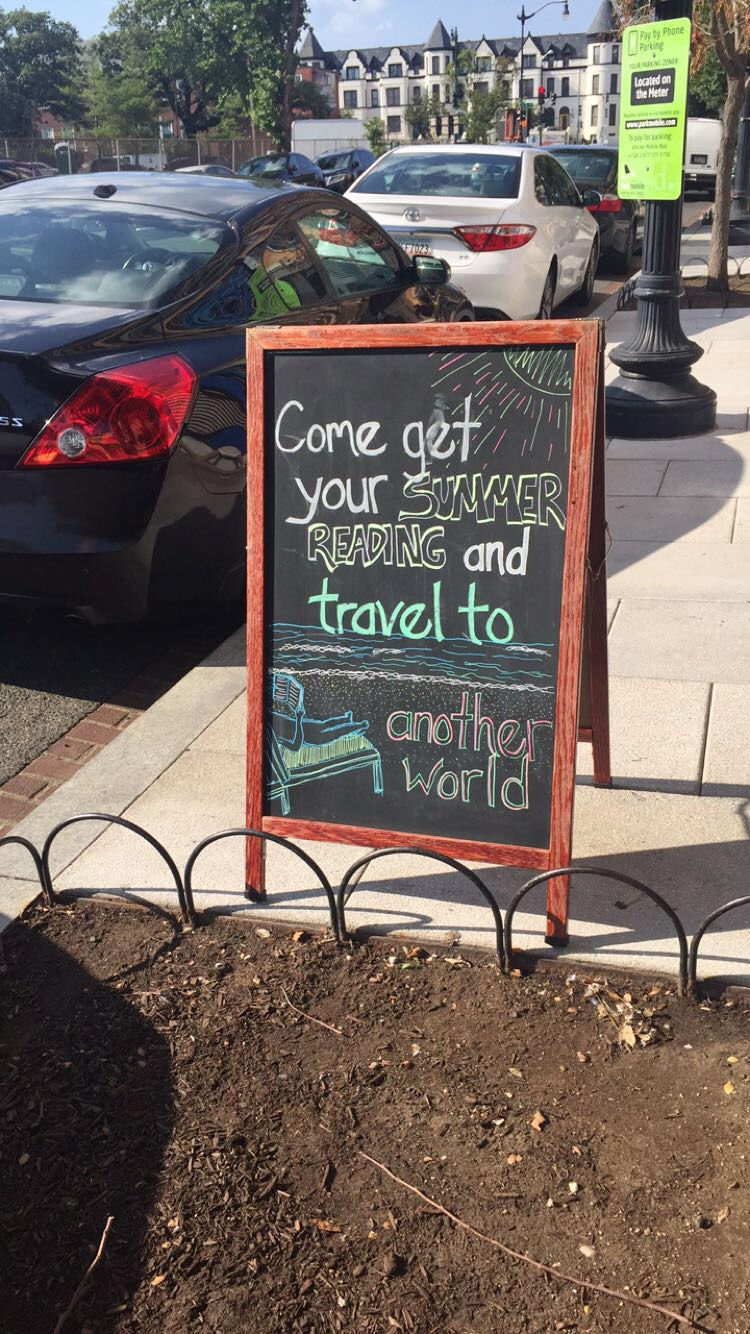 Come get
your SUMMER
READING and
travel to
another
world
Pay by Phone
Parking
YOUR PARKING ZONE#
Located on
the Meter
www.parkmobile.com
To pay for parking
mobile